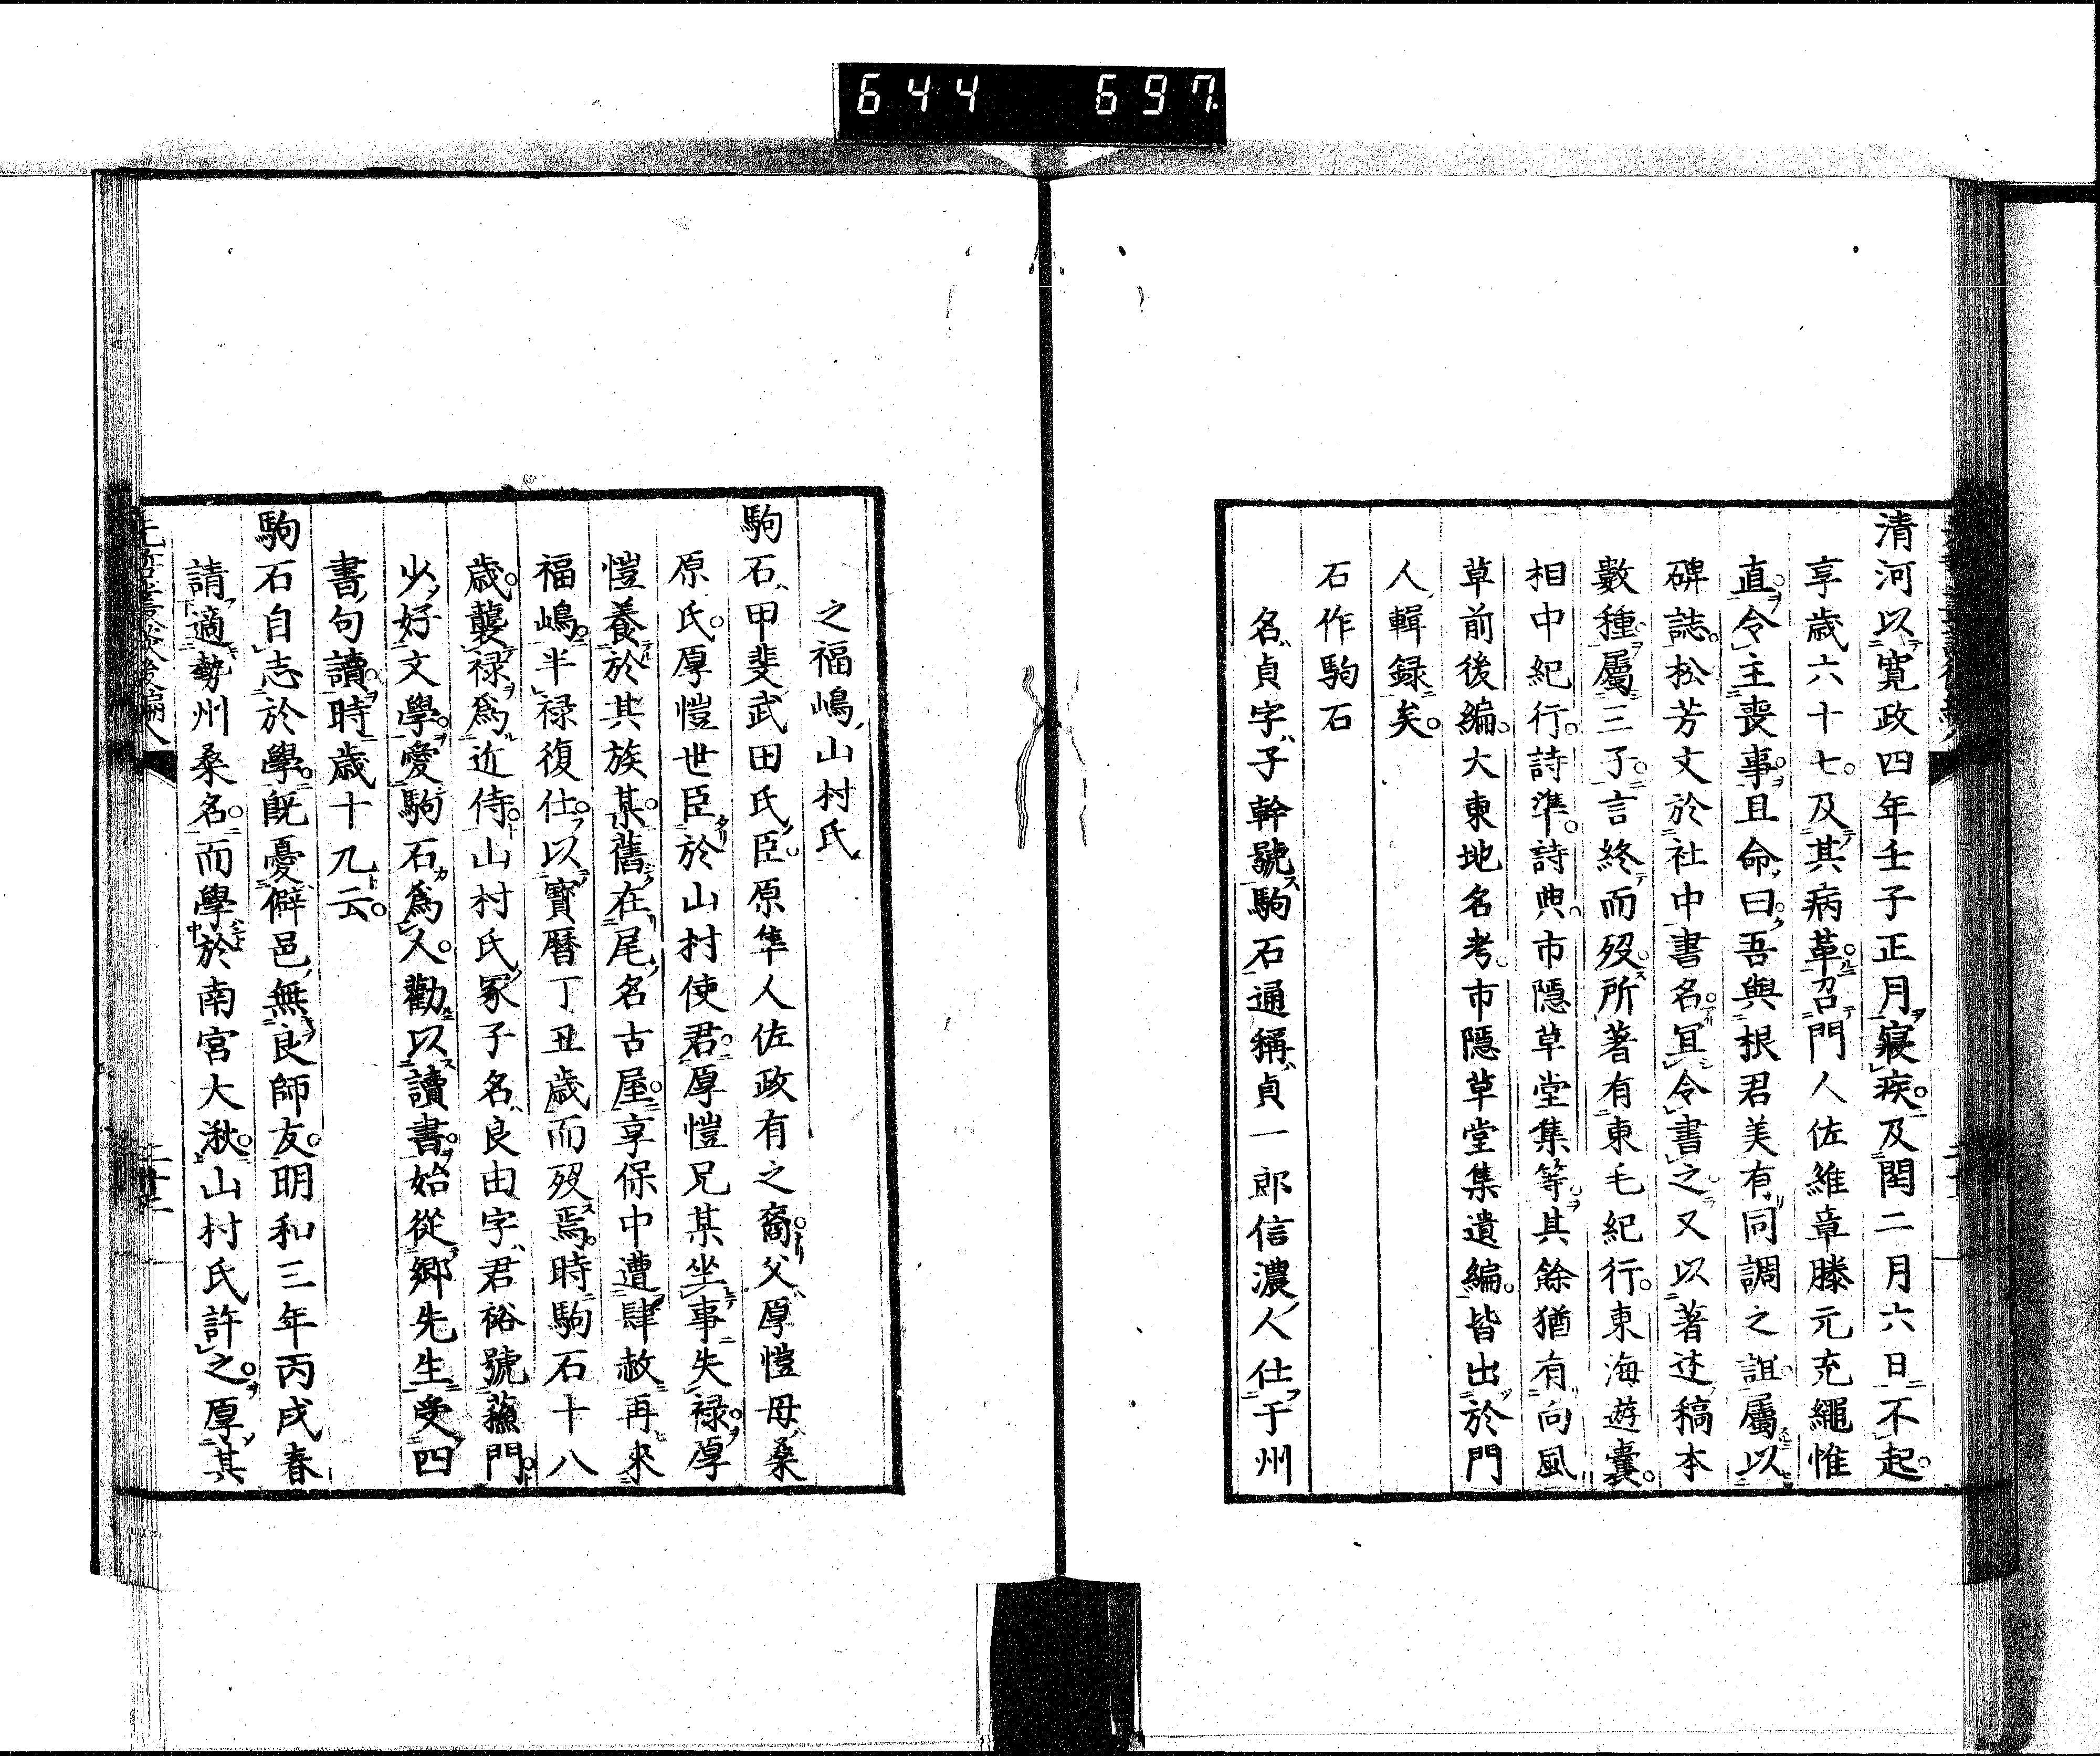 644 697
清河以寛政四年壬子正月寢疾。及閏二月六日不起。
享歳六十七。及其病革。召門人佐維章滕元充繩惟
直。令主喪事。且命曰。吾與根君美有同調之誼。屬以
碑誌。松芳文於社中書名。冝令書之。又以著述稿本
數種。屬三子。言終而歿。所著有東毛紀行。東海遊囊。
相中紀行。詩準。詩典。市隱草堂集等。其餘猶有向風
草前後編。大東地名考。市隱草堂集遺編。皆出於門
人輯録矣。
石作駒石
名貞字子幹號駒石通稱貞一郎信濃人仕于州
之福嶋山村氏
駒石甲斐武田氏臣。原隼人佐政有之裔。父厚愷母桑
原氏。厚愷世臣於山村使君。厚愷兄某坐事失禄。厚
愷養於其族某。舊在尾名古屋。享保中遭肆赦再來
福嶋。半禄復仕。以寳暦丁丑歳而歿焉。時駒石十八
歳。襲禄爲近侍。山村氏冢子名良由字君裕號蘓門。
少好文學。愛駒石爲人。勸以讀書。始從郷先生受四
書句讀。時歳十九云。
駒石自志於學。既憂僻邑無良師友。明和三年丙戌春
請適勢州桑名。而學於南宮大湫。山村氏許之。厚其
先哲叢談後編八